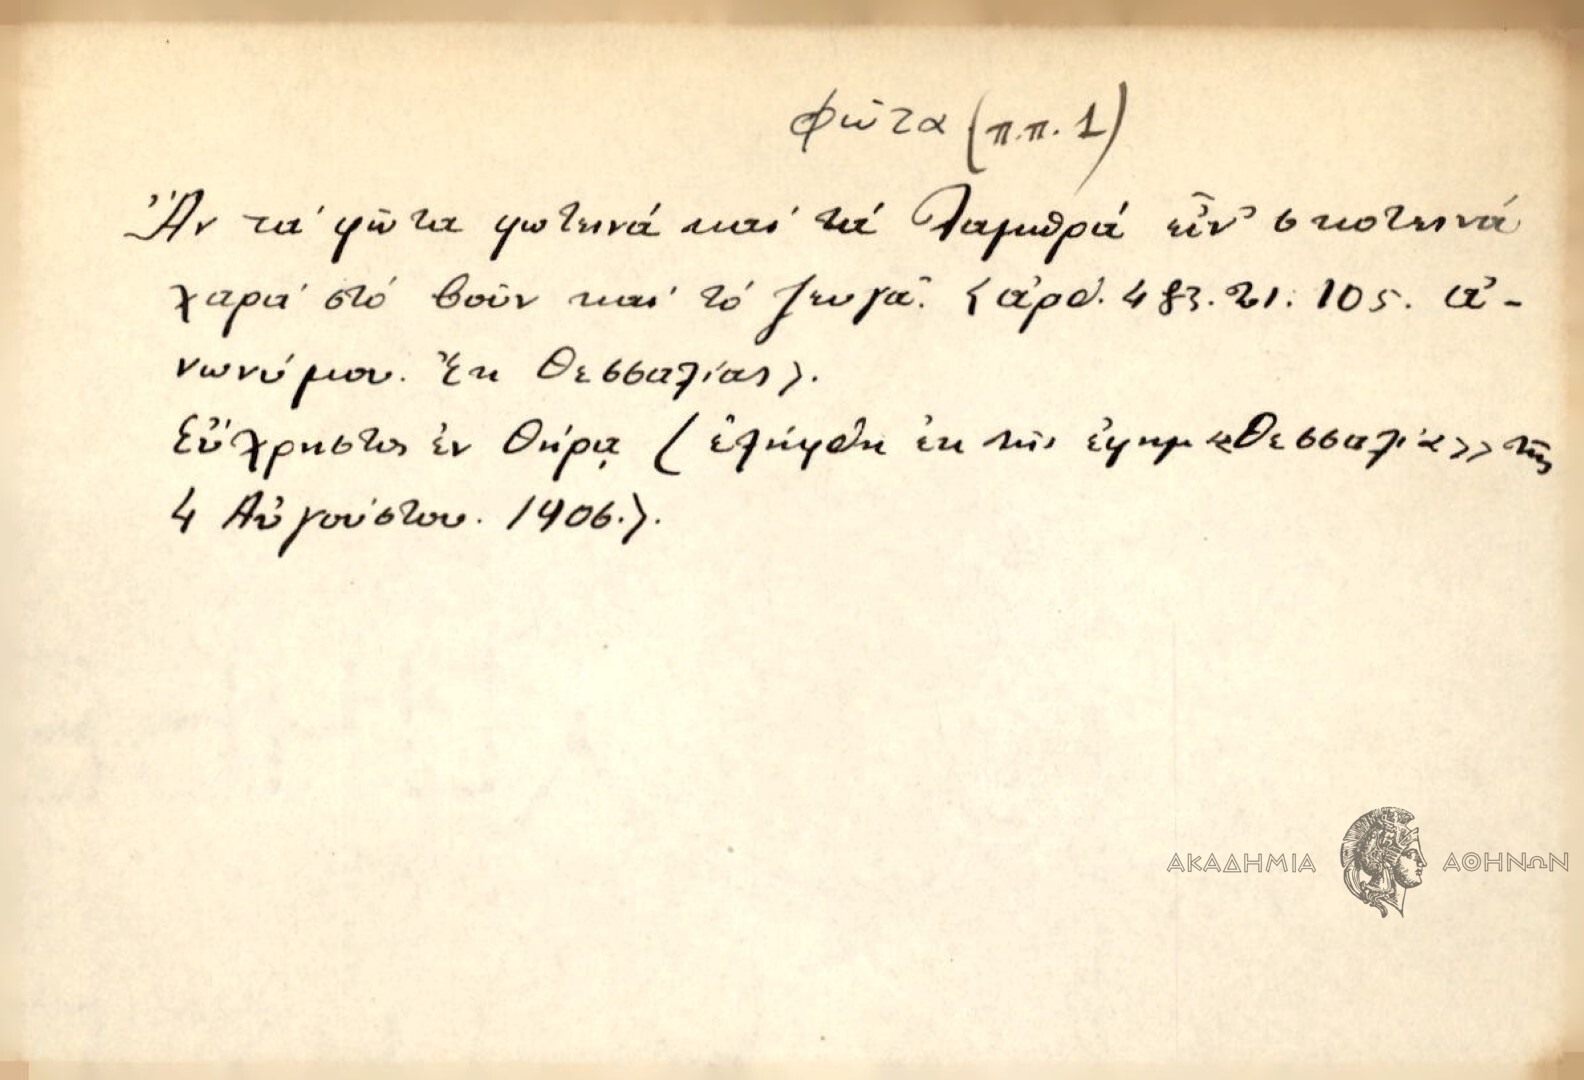 Φῶτα (π.π. 1)
Ἂν τά φῶτα φωτεινά καί τά Λαμπρά εἶν' σκοτεινά
χαρά στό βοῦν καί τό ζευγᾶ. (ἀρθ. 483. σελ. 105. ἀ-
νωνύμου. Ἐκ Θεσσαλίας).
Εὔχρηστος ἐν Θήρᾳ (ἐλήφθη ἐκ τῆς ἐφημ «Θεσσαλία» τῆς
4 Αὐγούστου. 1906.).
ΑΚΑΔΗΜΙΑ ΑΘΗΝΩΝ